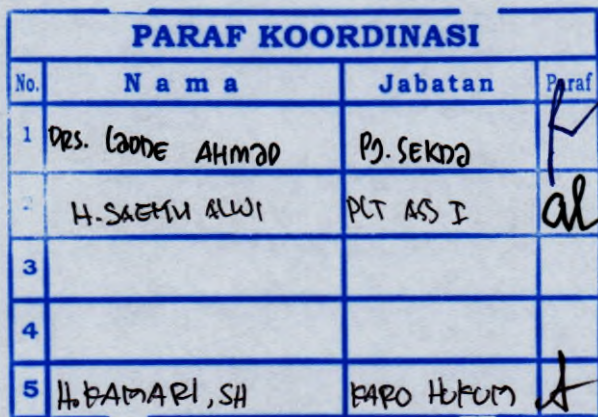 PARAF KOORDINASI
No. Nama Jabatan Paraf
1 DRS. LADDE AHMAD PJ. SEKDA
2 H. ALWI PLT ASS I
3
4
5 H. KAMARI, SH KARO HUKUM